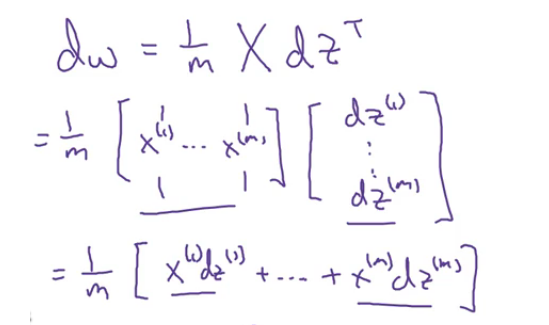 dw = 1/m X dz^T
= 1/m [ x^(1) ... x^(m) ] [ dz^(1) ⋮ dz^(m) ]
= 1/m [ x^(1)dz^(1) + ... + x^(m)dz^(m) ]